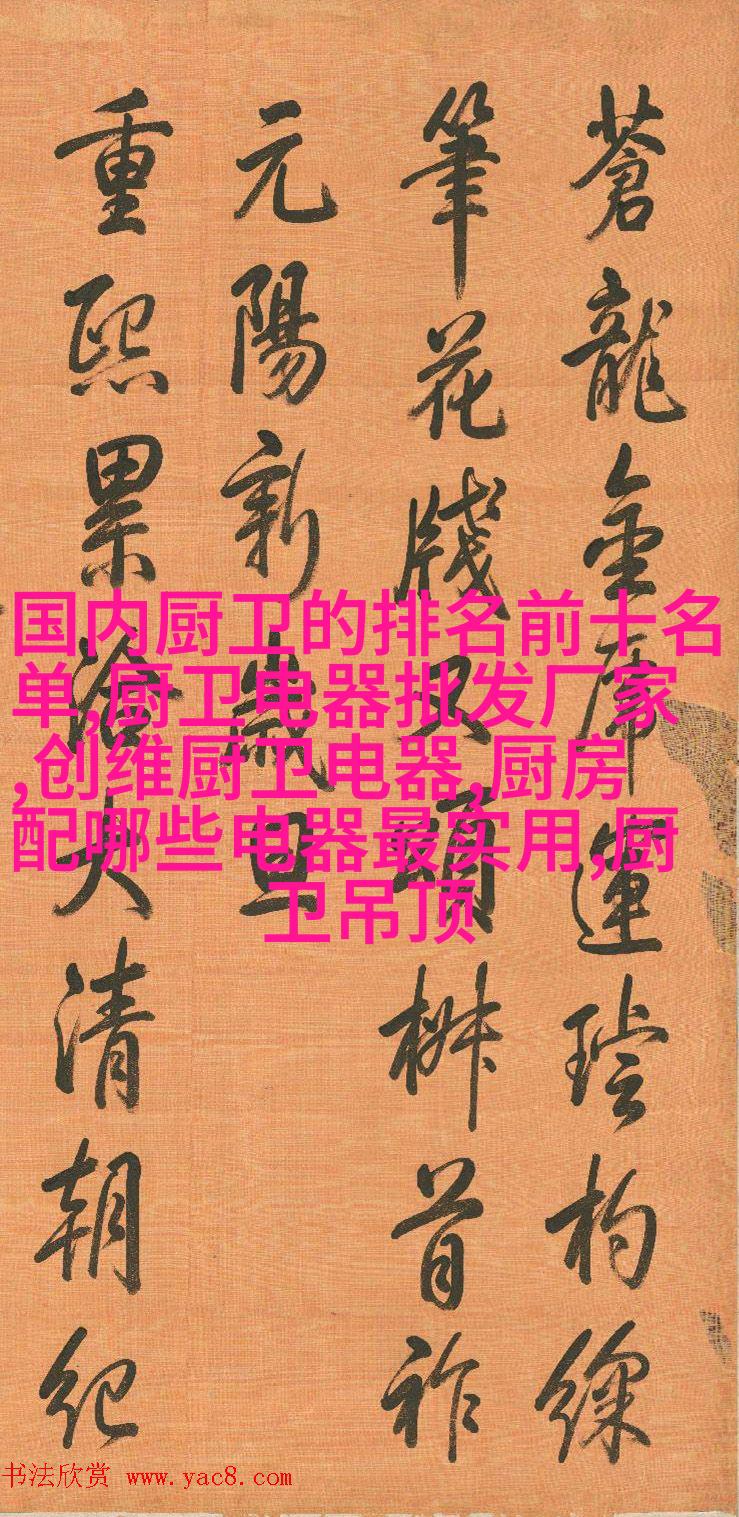 蒼龍金運璿杓
筆花牋只頌椒首祚
元陽新歲旦
重熙累洽大清朝紀
国内厨卫的排名前十名
单,厨卫电器批发厂家
,创维厨卫电器,厨房
配哪些电器最实用,厨
卫吊顶
书法欣赏 www.yac8.com